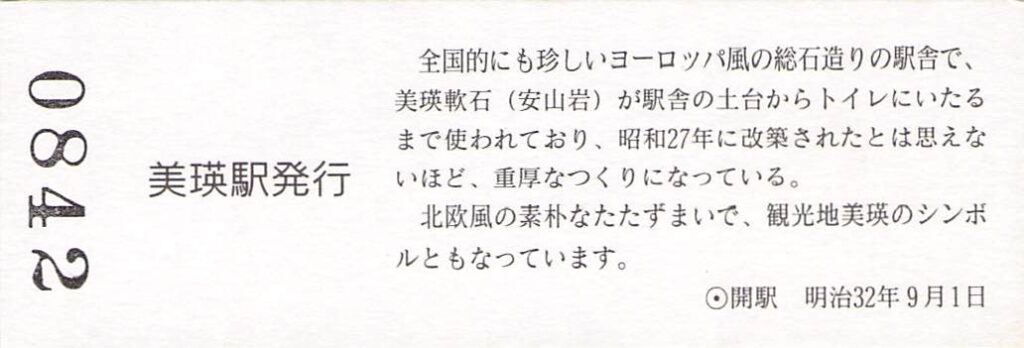 0842
美瑛駅発行
全国的にも珍しいヨーロッパ風の総石造りの駅舎で、
美瑛軟石（安山岩）が駅舎の土台からトイレにいたる
まで使われており、昭和27年に改築されたとは思えな
いほど、重厚なつくりになっている。
北欧風の素朴なたたずまいで、観光地美瑛のシンボ
ルともなっています。
⊙開駅　明治32年9月1日